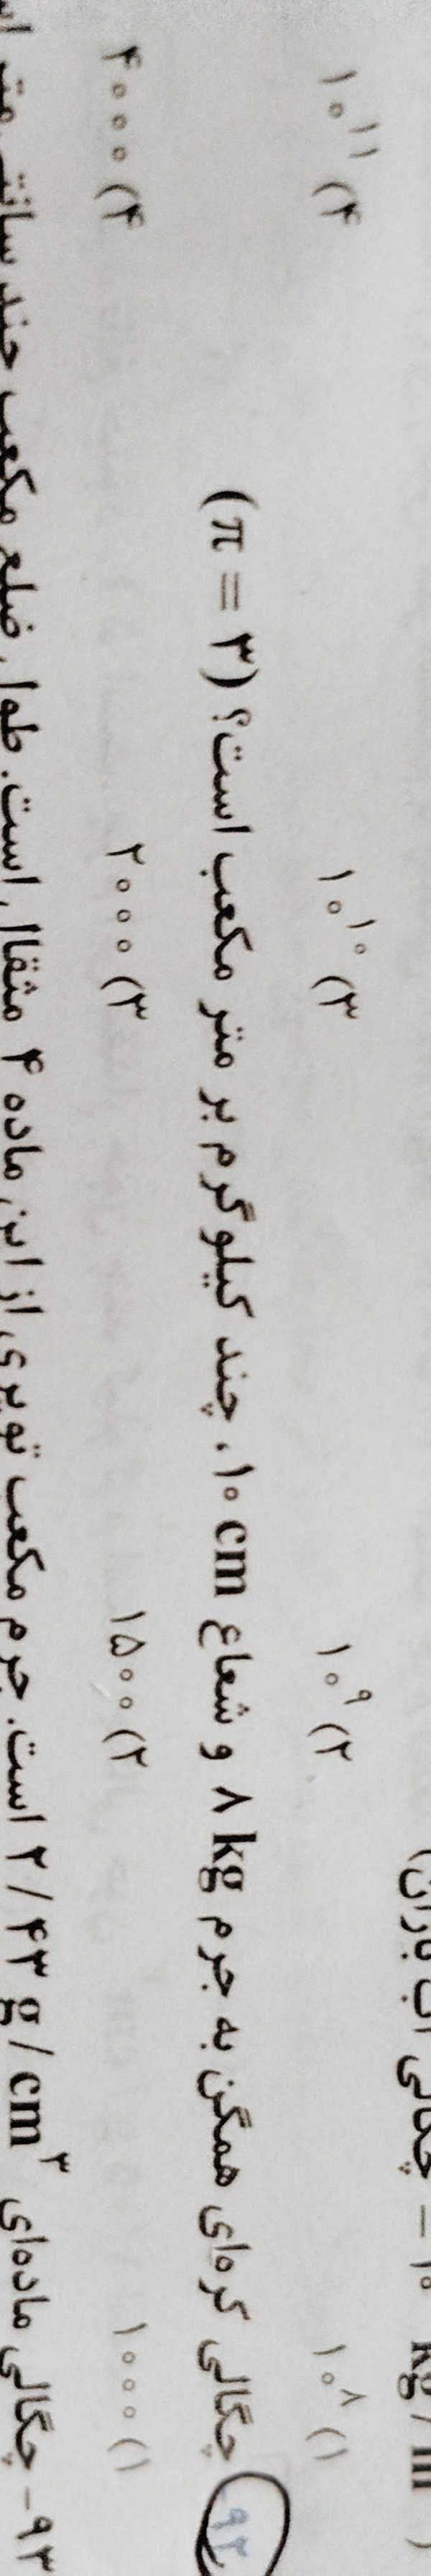 چگالی آب باران = ۱۰
۱) ۱۰^۸ ۲) ۱۰^۹ ۳) ۱۰^۱۰ ۴) ۱۰^۱۱
۹۲- چگالی کره‌ای همگن به جرم ۸ kg و شعاع ۱۰ cm، چند کیلوگرم بر متر مکعب است؟ (π = ۳)
۱) ۱۰۰۰ ۲) ۱۵۰۰ ۳) ۲۰۰۰ ۴) ۴۰۰۰
۹۳- چگالی ماده‌ای ۲/۴۳ g/cm^۳ است. جرم مکعب توپری از این ماده ۴ مثقال است. طول ضلع مکعب چند سانتی‌متر